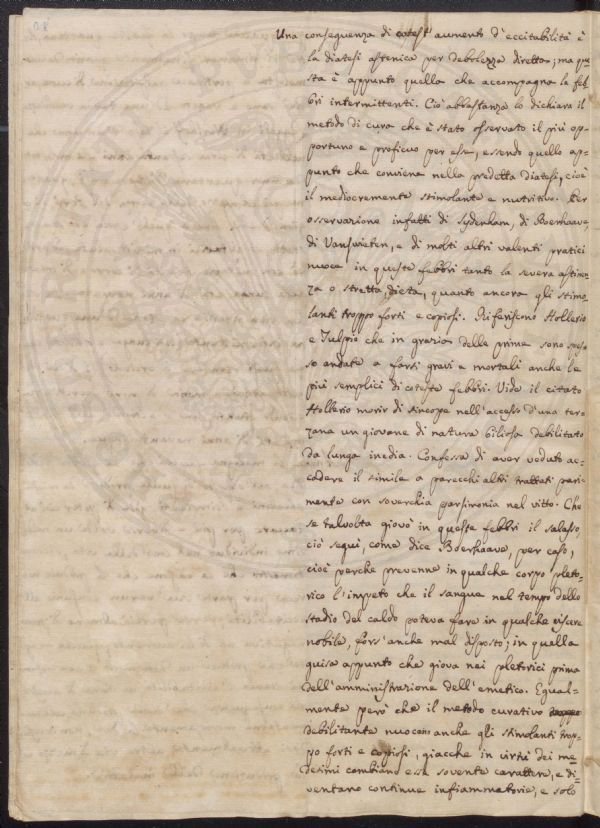 Una conseguenza di cotest' aumento d'eccitabilità è
la diatesi astenica per debolezza diretta; ma que
sta è appunto quella che accompagna le feb
bri intermittenti. Ciò abbastanza lo dichiara il
metodo di cura che è stato osservato il più op
portuno e proficuo per esse, essendo quello ap=
punto che conviene nella predetta Diatesi, cioè
il mediocremente stimolante e nutritivo. Per
osservazione infatti di Sydenham, di Boerhaave,
di Vanswieten, e di molti altri valenti pratici
nuoce in queste febbri tanto la severa astinen
za o stretta dieta, quanto ancora gli stimo
lanti troppo forti e copiosi. Riferiscono Hollerio
e Tulpio che in grazia delle prime sono spes
so andate a farsi gravi e mortali anche le
più semplici di coteste febbri. Vide il citato
Hollerio morir di sincope nell'accesso d'una ter
zana un giovane di natura biliosa debilitato
da lunga inedia. Confessa di aver veduto ac=
cadere il simile a parecchi altri trattati pari
mente con soverchia parsimonia nel vitto. Che
se talvolta giovò in queste febbri il salasso,
ciò seguì, come dice Boerhaave, per caso,
cioè perche prevenne in qualche corpo pleto=
rico l'impeto che il sangue nel tempo dello
stadio del caldo poteva fare in qualche viscere
nobile, fors'anche mal disposto; in quella
guisa appunto che giova nei pletorici prima
dell'amministrazione dell'emetico. Egual=
mente però che il metodo curativo troppo
debilitante nuocono anche gli stimolanti trop=
po forti e copiosi, giacche in virtù dei me
desimi cambiano esse sovente carattere, e di=
ventano continue infiammatorie, e solo